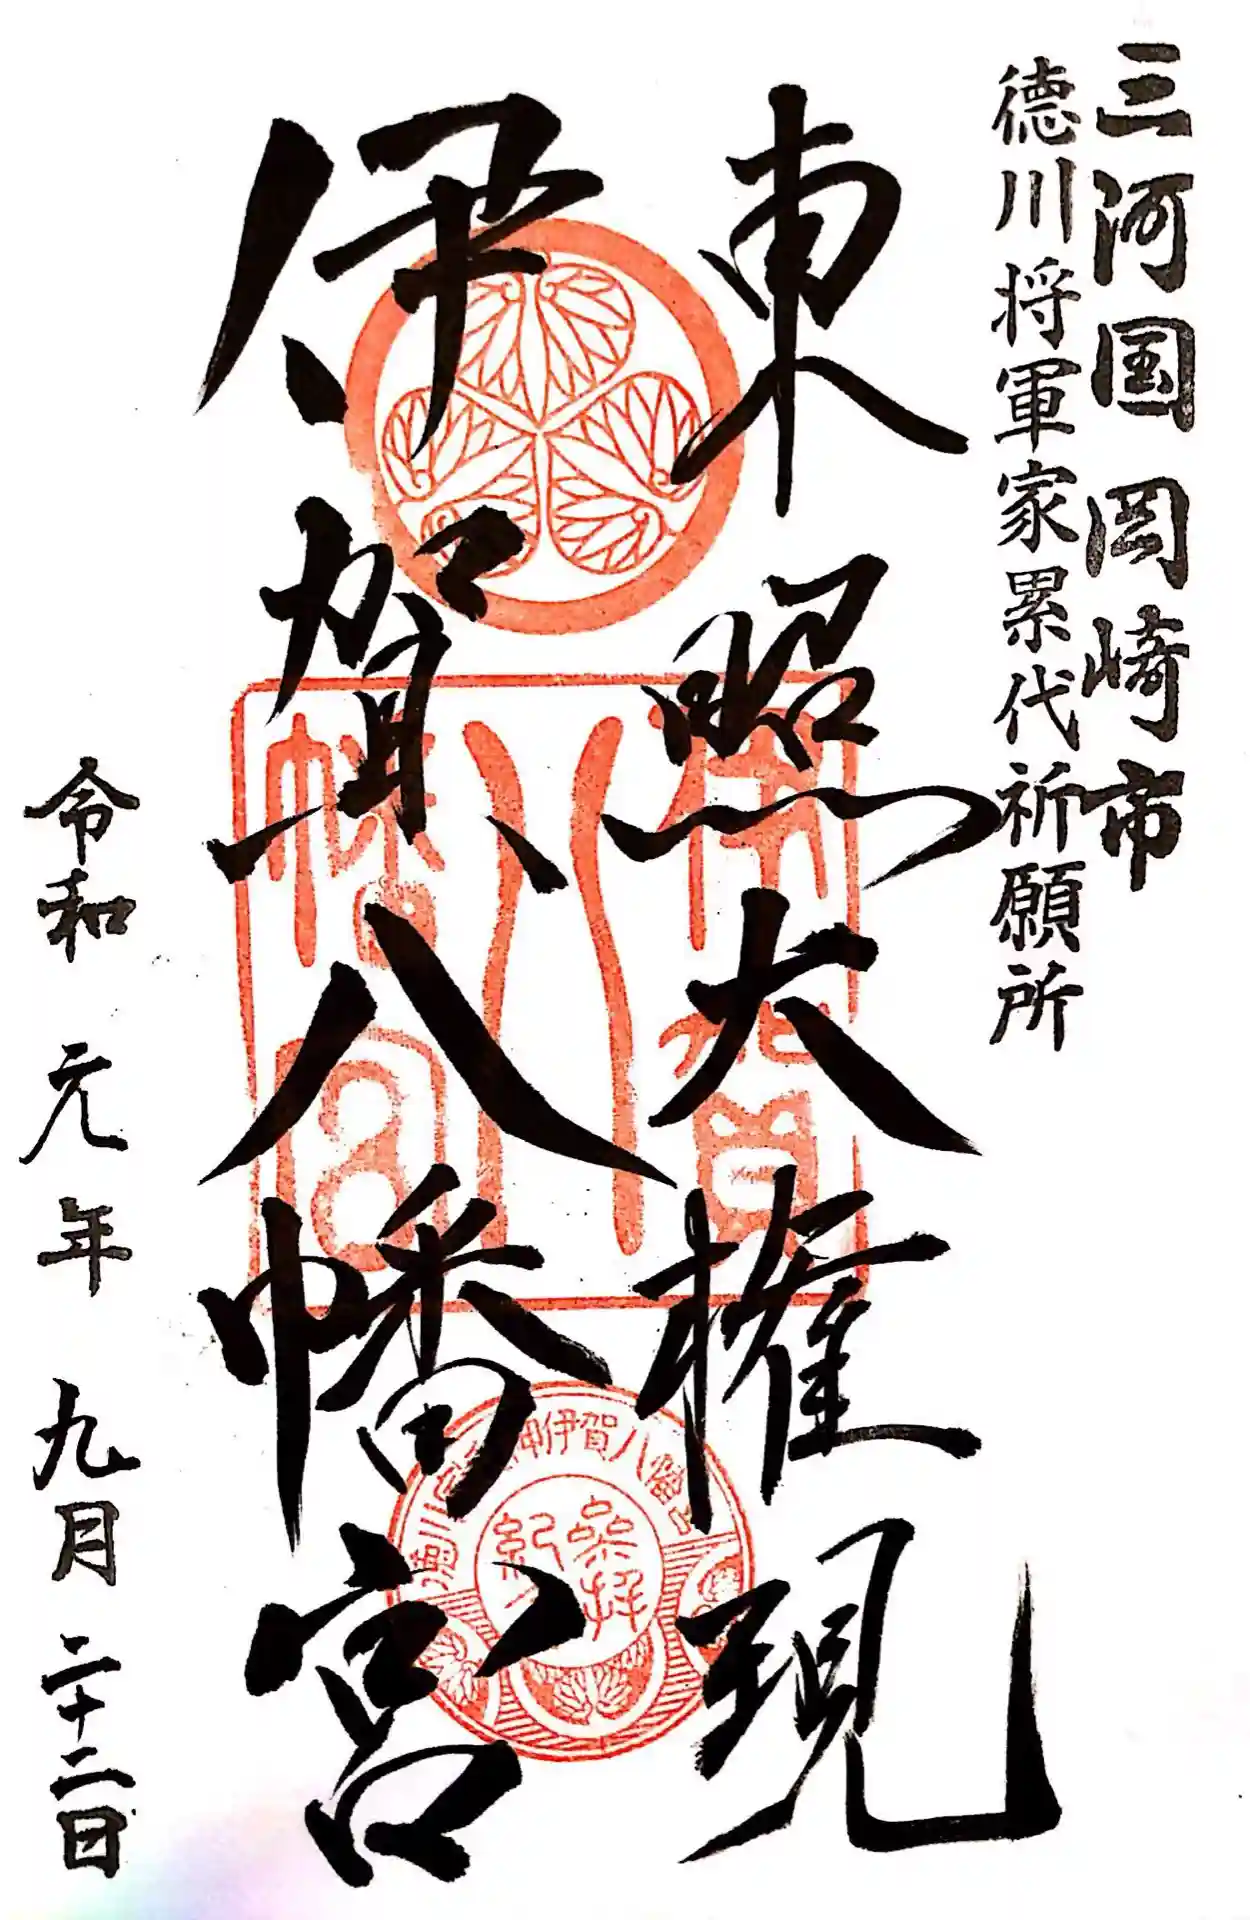 三河国 岡崎市
徳川将軍家累代祈願所
東照大権現
伊賀八幡宮
令和 元年 九月 二十二日
伊賀八幡宮
伊賀八幡宮
参拝
紀